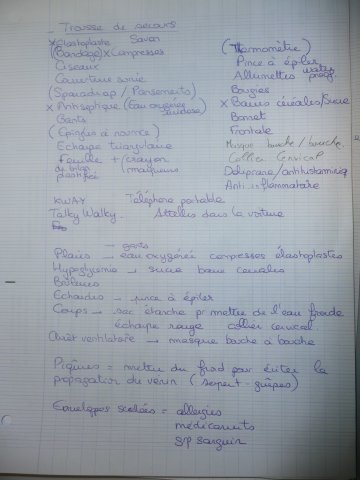 - Trousse de secours
x Elastoplaste Savon
(Bandage) x Compresses
Ciseaux
Couverture survie
(Sparadrap / Pansements)
x Antiseptique (Eau oxygénée
Gants
(Epingles à nourrice)
Echarpe triangulaire
Feuille + crayon
de bilan marqueurs
plastifiée
(Thermomètre)
Pince à épiler
Allumettes water proof
Bougies
x Barres céréales/Sucre
Bonnet
Frontale
Masque bouche/bouche
Collier Cervical
Doliprane/antihistaminiq
Anti inflammatoire
KWAY Téléphone portable
Talky Walky. Attelles dans la voiture
→ gants
Plaies → eau oxygénée compresses élastoplastes
Hypoglycémie → sucre barre céréales
Echardes → pince à épiler
Coups → sac étanche pr mettre de l'eau froide
écharpe rouge collier cervical
Arrêt ventilatoire → masque bouche à bouche
Piqûres = mettre du froid par éviter la
propagation du venin (serpent - guêpes)
Enveloppes scellées = allergies
médicaments
gp sanguin